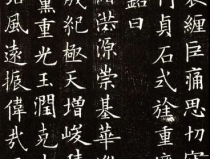 纏巨痛思切
貞石式旌重
銘曰
洪源崇基華
族紀極天增峻
重光玉潤克
風遠振偉哉